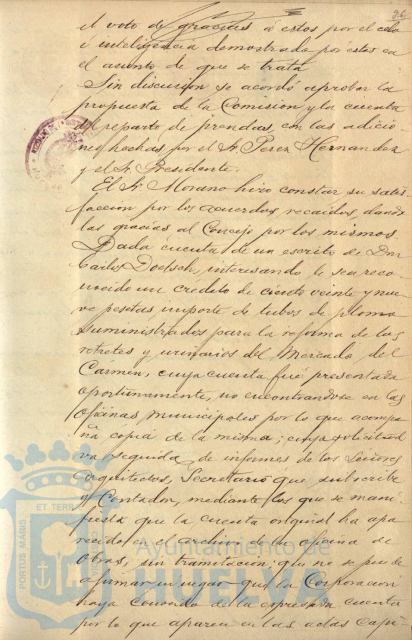 76
el voto de gracias á estos por el celo
é inteligencia demostrada por estos en
el asunto de que se trata
Sin discusion se acordó aprobar la
propuesta de la Comision y la cuenta
del reparto de prendas, con las adicio-
nes hechas por el Sr. Perez Hernandez
y el Sr. Presidente.
El Sr. Morano hizo constar su satis
faccion por los acuerdos recaidos, dando
las gracias al Concejo por los mismos
Dada cuenta de un escrito de Don
Carlos Doetsch, interesando le sea reco
nocido un credito de ciento veinte y nue
ve pesetas importe de tubos de plomo
suministrados para la reforma de los
retretes y urinarios del Mercado del
Carmen, cuya cuenta fué presentada
oportunamente, no encontrandose en las
oficinas municipales por lo que acompa
ña copia de la misma; cuya solicitud
va seguida de informes de los Señores
Arquitectos, Secretario que subscribe
y Contador, mediante los que se mani-
fiesta que la cuenta original ha apa
recido en el archivo de la oficina de
obras, sin tramitacion; que no se puede
afirmar ni negar que la Corporacion
haya conocido de la expresada cuenta
por lo que aparece en las actas Capi-
ET TERRÆ
PORTUS MARIS
Ayuntamiento de
HUELVA